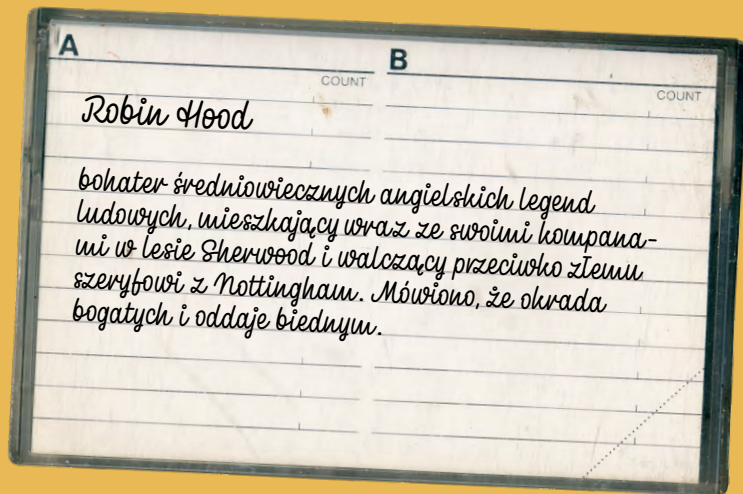 A B
COUNT COUNT
Robin Hood
bohater średniowiecznych angielskich legend
ludowych, mieszkający wraz ze swoimi kompana-
mi w lesie Sherwood i walczący przeciwko złemu
szeryfowi z Nottingham. Mówiono, że okrada
bogatych i oddaje biednym.